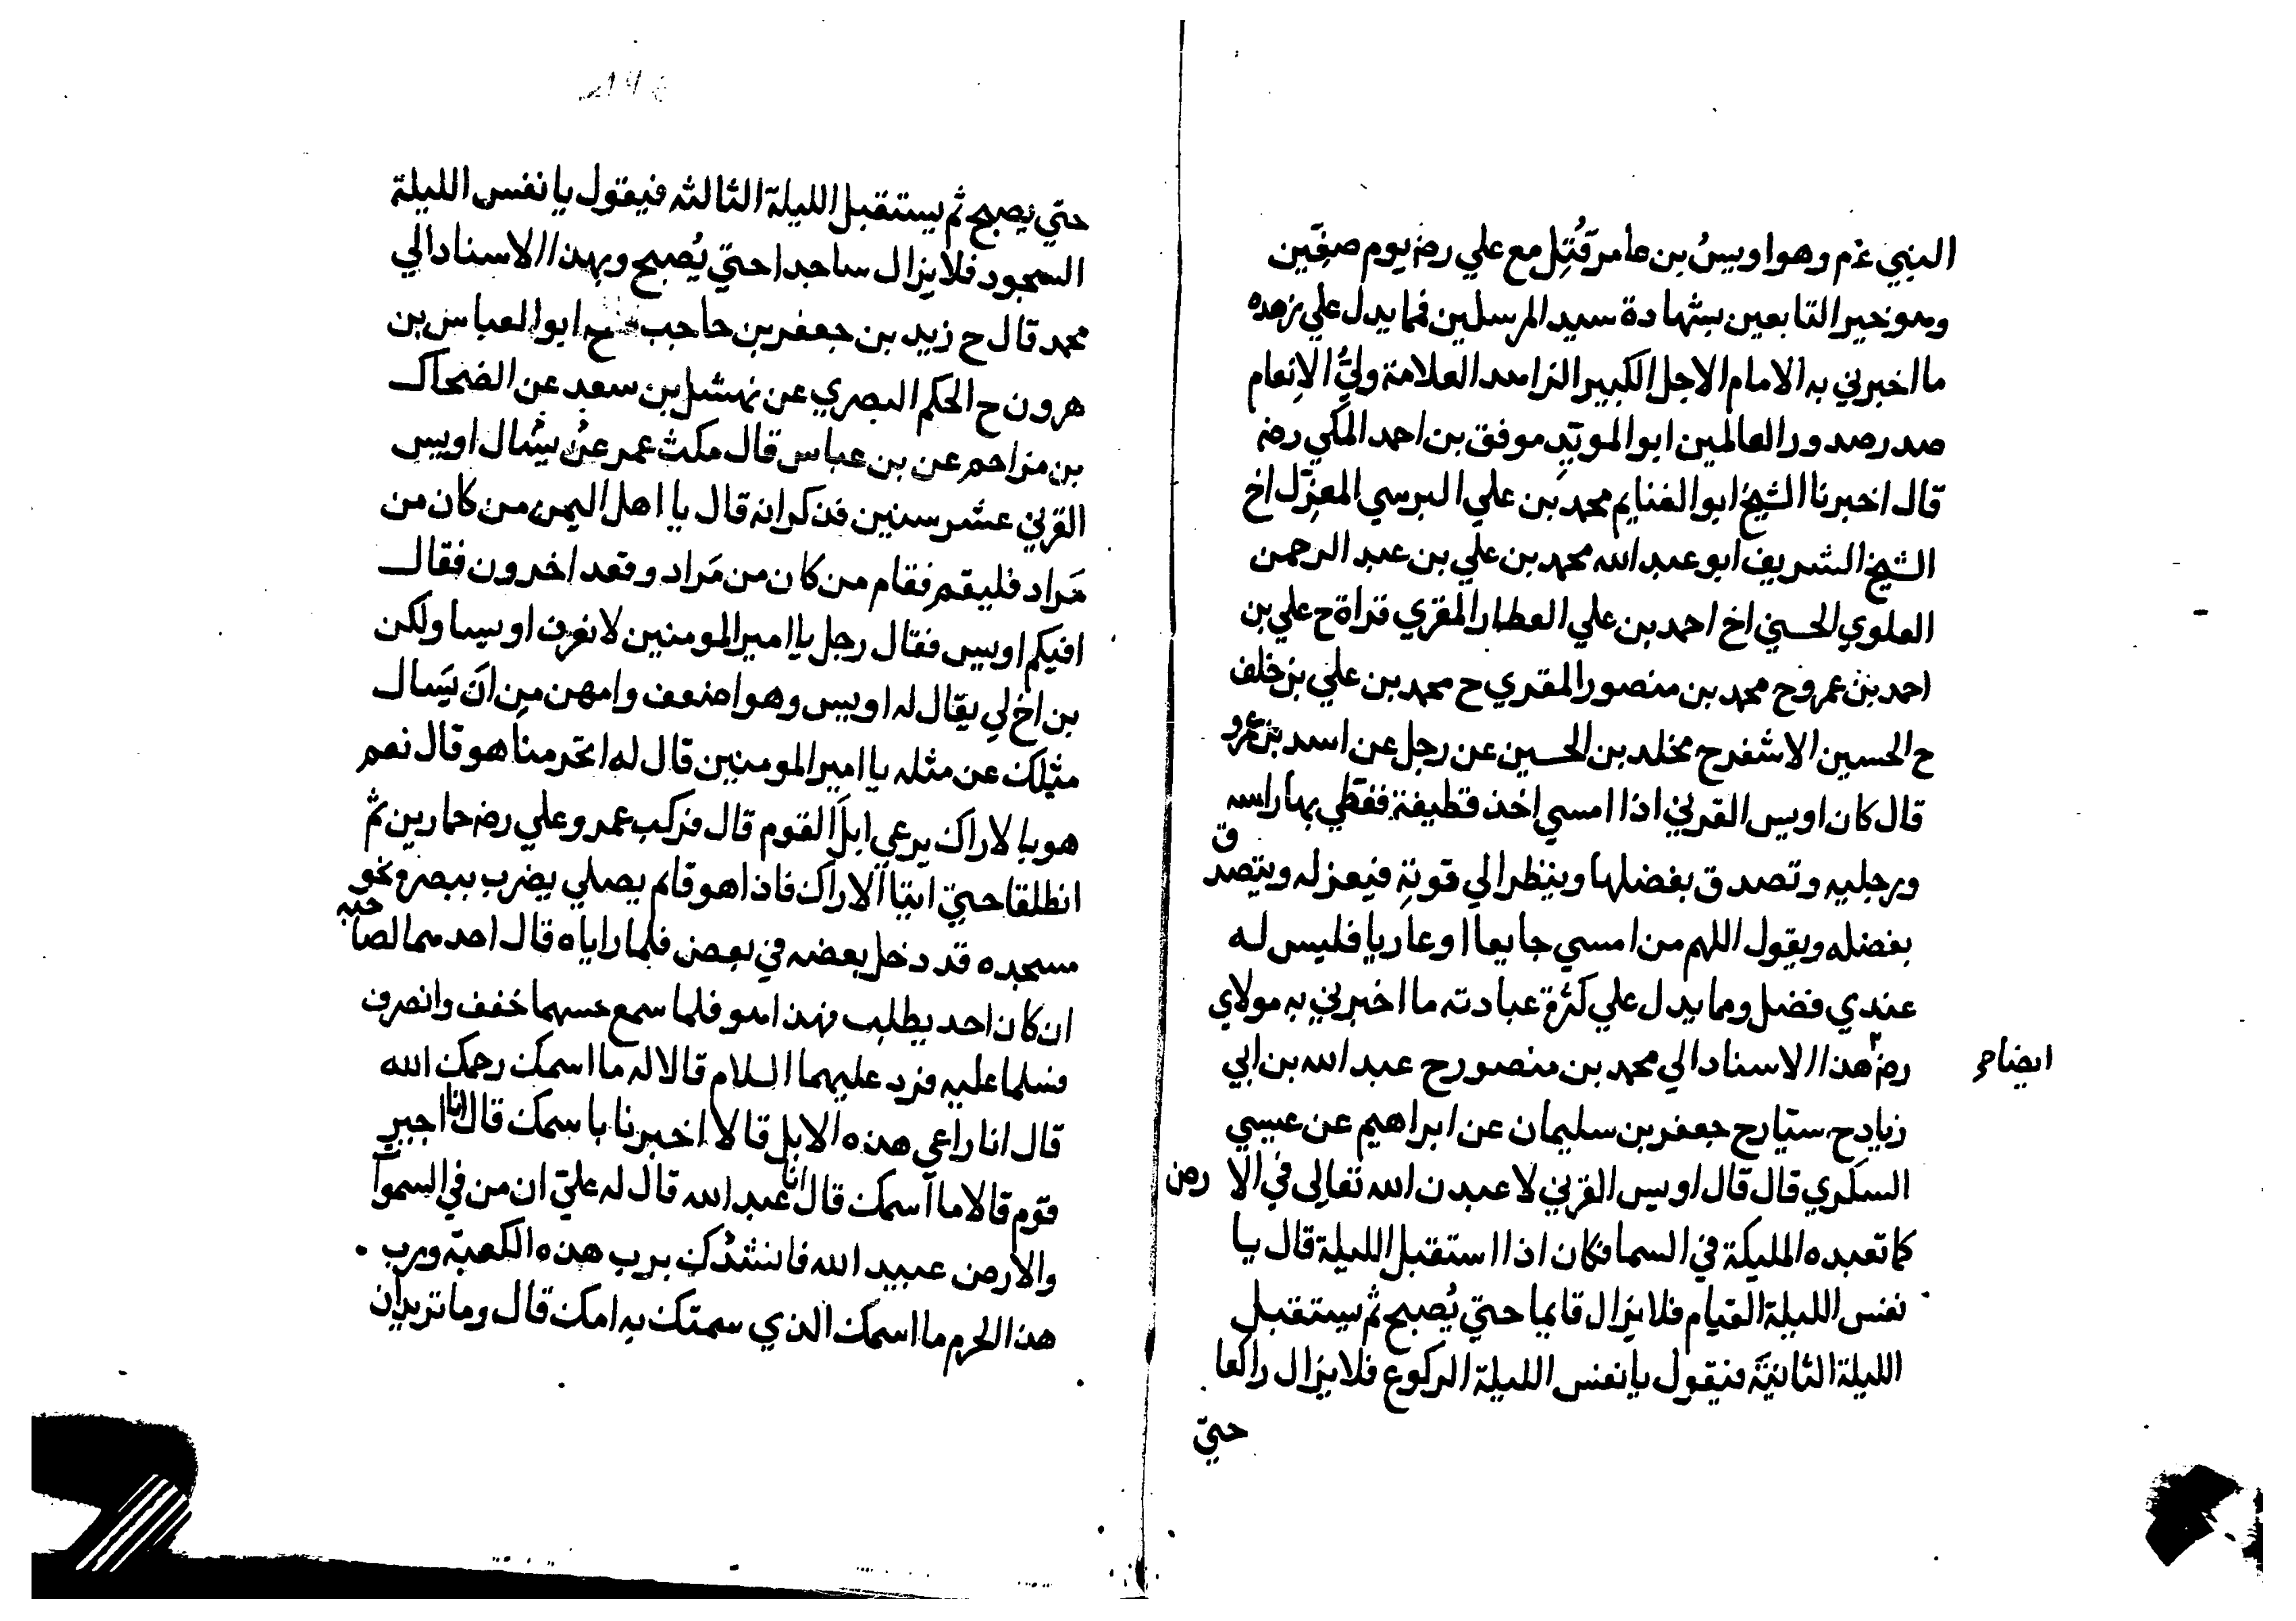 النبي عم وهو اويسُ بن عامر قُتِل مع علي رضه يوم صفِّين
وهو خير التابعين بشهادة سيد المرسلين فما يدل علي زهده
ما اخبرني به الامام الاجل الكبير الزاهد العلامة وليُّ الانعام
صدر صدور العالمين ابو الموتد موفق بن احمد المكي رضه
قال اخبرنا الشيخ ابو الغنايم محمد بن علي البرسي المعزل اخ
الشيخ الشريف ابو عبد الله محمد بن علي بن عبد الرحمن
العلوي الحسني اخ احمد بن علي العطار المقري قراة ح علي بن
احمد بن عمرو ح محمد بن منصور المقري ح محمد بن علي بن خلف
ح الحسين الاشقر ح مخلد بن الحسين عن رجل عن اسد بن عمرو
قال كان اويس القرني اذا امسي اخذ قطيفة فغطي بها راسه
ورجليه وتصدق بفضلها وينظر الي قوته فيعزله ويتصدق
بفضله ويقول اللهم من امسي جايعا او عاريا فليس له
عندي فضل ومما يدل علي كثرة عبادته ما اخبرني به مولاي
رضه هذا الاسناد الي محمد بن منصور ح عبد الله بن ابي
ايضا
زياد ح سيار ح جعفر بن سليمان عن ابراهيم عن عيسي
السكري قال قال اويس القرني لاعبدن الله تعالى في الارض
كما تعبده المليكة في السما فكان اذا استقبل الليلة قال يا
نفس الليلة القيام فلا يزال قايما حتي يُصبح ثم يستقبل
الليلة الثانية فيقول يا نفس الليلة الركوع فلا يزال راكعا
حتي
حتي يصبح ثم يستقبل الليلة الثالثه فيقول يا نفس الليلة
السجود فلا يزال ساجدا حتي يُصبح وبهذا الاسناد الي
محمد قال ح زيد بن جعفر بن حاجب ح ابو العباس بن
هرون ح الحكم البصري عن نهشل بن سعد عن الضحاك
بن مزاحم عن بن عباس قال مكث عمر يسال اويس
القرني عشر سنين فذكر انه قال يا اهل اليمن من كان من
مَراد فليقم فقام من كان من مَراد وقعد اخرون فقال
افيكم اويس فقال رجل يا امير المومنين لا نعرف اويسا ولكن
بن اخ لي يقال له اويس وهو اضعف وامهن مِن ان يَسال
مثلك عن مثله يا امير المومنين قال له اتحرمنا هو قال نعم
هو بالاراك يرعي ابل القوم قال فركب عمر وعلي رضه حمارين ثم
انطلقا حتي اتيا الاراك فاذا هو قايم يصلي يضرب ببصره نحو
مسجده قد دخل بعضه في بعض فلما راياه قال احدهما لصاحبه
ان كان احد يطلب فهذا هو فلما سمع حسهما خفف وانصرف
فسلما عليه فرد عليهما السلام قالا له ما اسمك رحمك الله
قال انا راعي هذه الابل قالا اخبرنا باسمك قال انا اجير
قوم قالا ما اسمك قال انا عبد الله قال له علي ان من في السموا
والارض عبيد الله فانشدك برب هذه الكعبة ورب
هذا الحرم ما اسمك الذي سمتك به امك قال وما تريدان